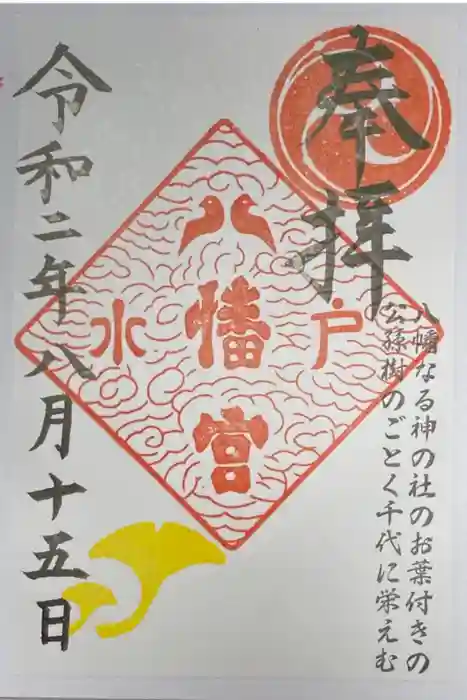 奉拝
八幡なる神の社のお葉付きの
公孫樹のごとく千代に栄えむ
八幡宮
水戸
令和二年八月十五日